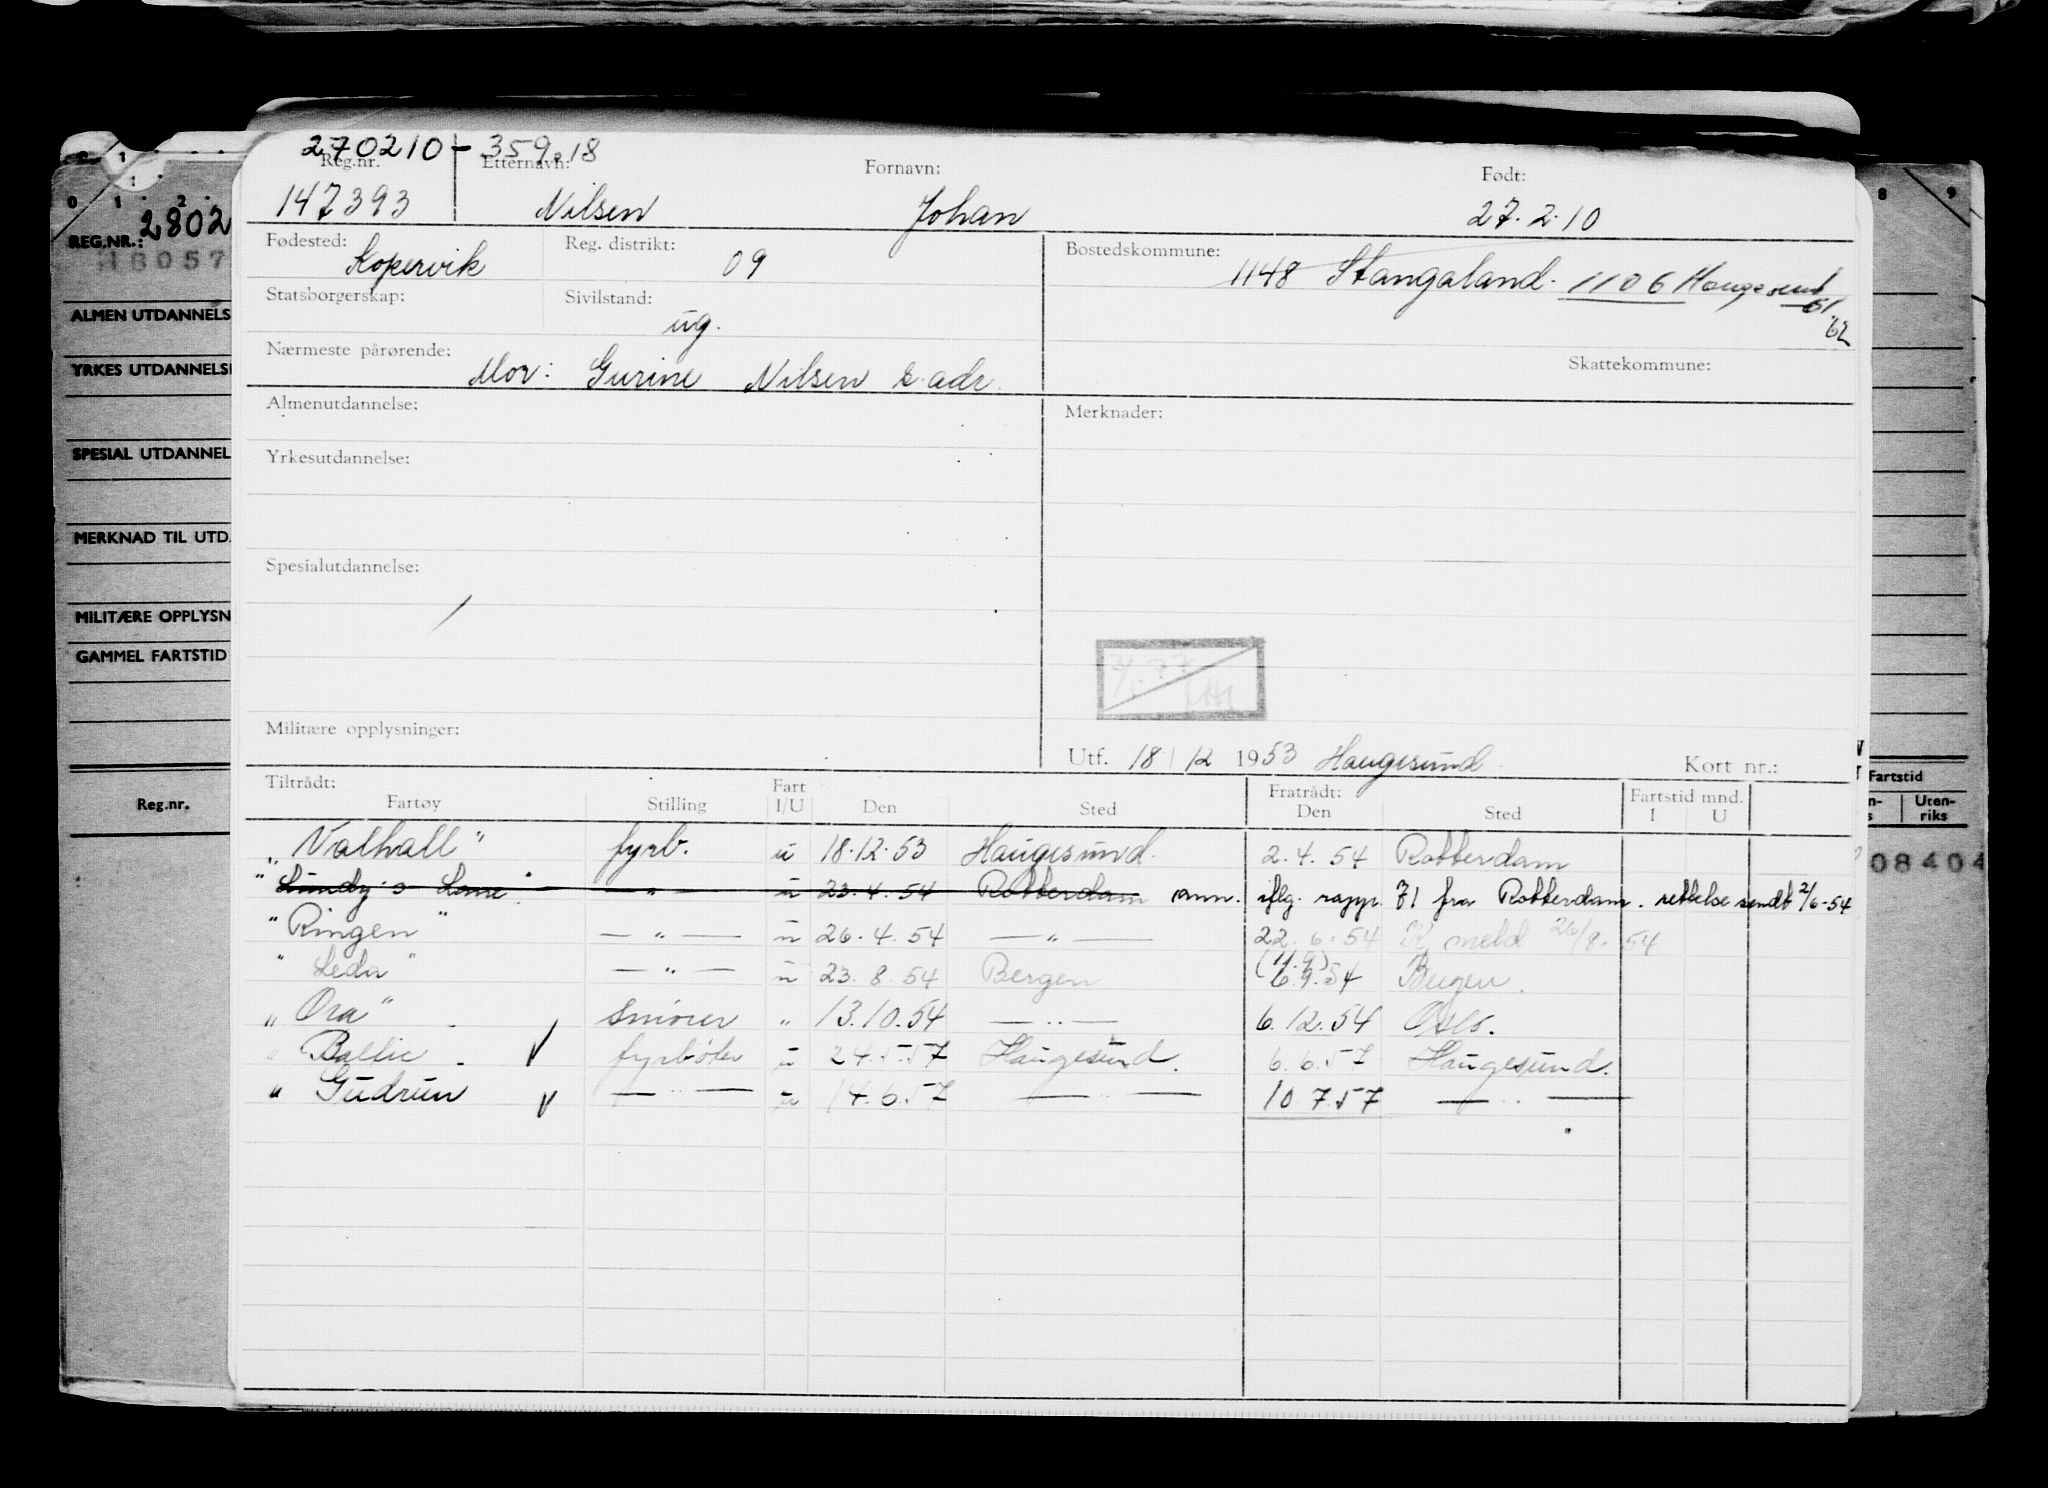 270210-35918
Reg.nr. Etternavn: Fornavn: Født:
147393 Nilsen Johan 27.2.10
Fødested: Kopervik Reg. distrikt: 09 Bostedskommune: 1148 Stangaland. 1106 Haugesund
61
62
Statsborgerskap: Sivilstand: ug.
Nærmeste pårørende: Mor: Gurine Nilsen s. adr. Skattekommune:
Almenutdannelse: Merknader:
Yrkesutdannelse:
Spesialutdannelse:
Militære opplysninger:
Utf. 18/12 1953 Haugesund Kort nr.:
Tiltrådt: Fratrådt: Fartstid mnd.
Fartøy Stilling Fart I/U Den Sted Den Sted I U
"Valhall" fyrb. u 18.12.53 Haugesund. 2.4.54 Rotterdam
" Lundy's Lane " — " — u 23.4.54 Rotterdam ann. iflg. rapp. 71 fra Rotterdam. rettelse sendt 2/6-54
"Ringen" — " — u 26.4.54 — " — 22.6.54 K meld 26/8.54
" Leda " — " — u 23.8.54 Bergen (11.9) 6.9.54 Bergen.
" Ora " smører " 13.10.54 — " — 6.12.54 Oslo.
" Baltic - V fyrbøter u 24.5.57 Haugesund. 6.6.57 Haugesund.
" Gudrun V — " — u 14.6.57 — " — 10.7.57 — " —
0 1 2
REG.NR.: 2802
ALMEN UTDANNELS
YRKES UTDANNELS
SPESIAL UTDANNEL
MERKNAD TIL UTD.
MILITÆRE OPPLYSN
GAMMEL FARTSTID
Reg.nr.
8 9
Fartstid
Uten-
riks
08404